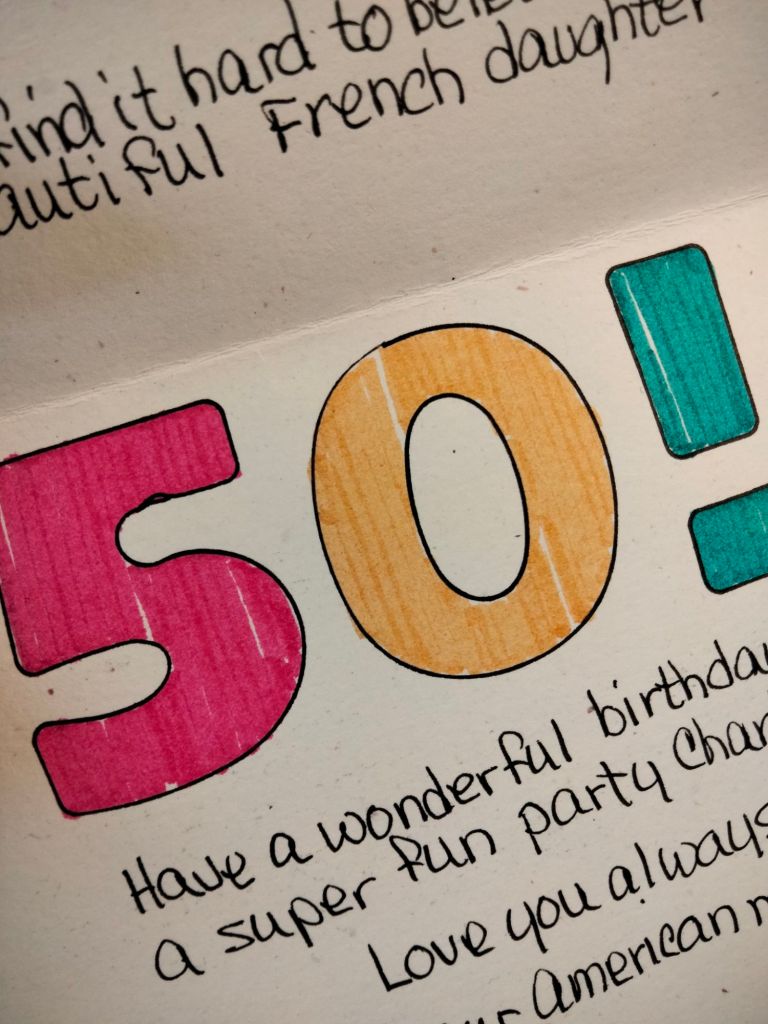 find it hard to
autiful French daughter
50!
Have a wonderful birthda
a super fun party Char
Love you always
ur American